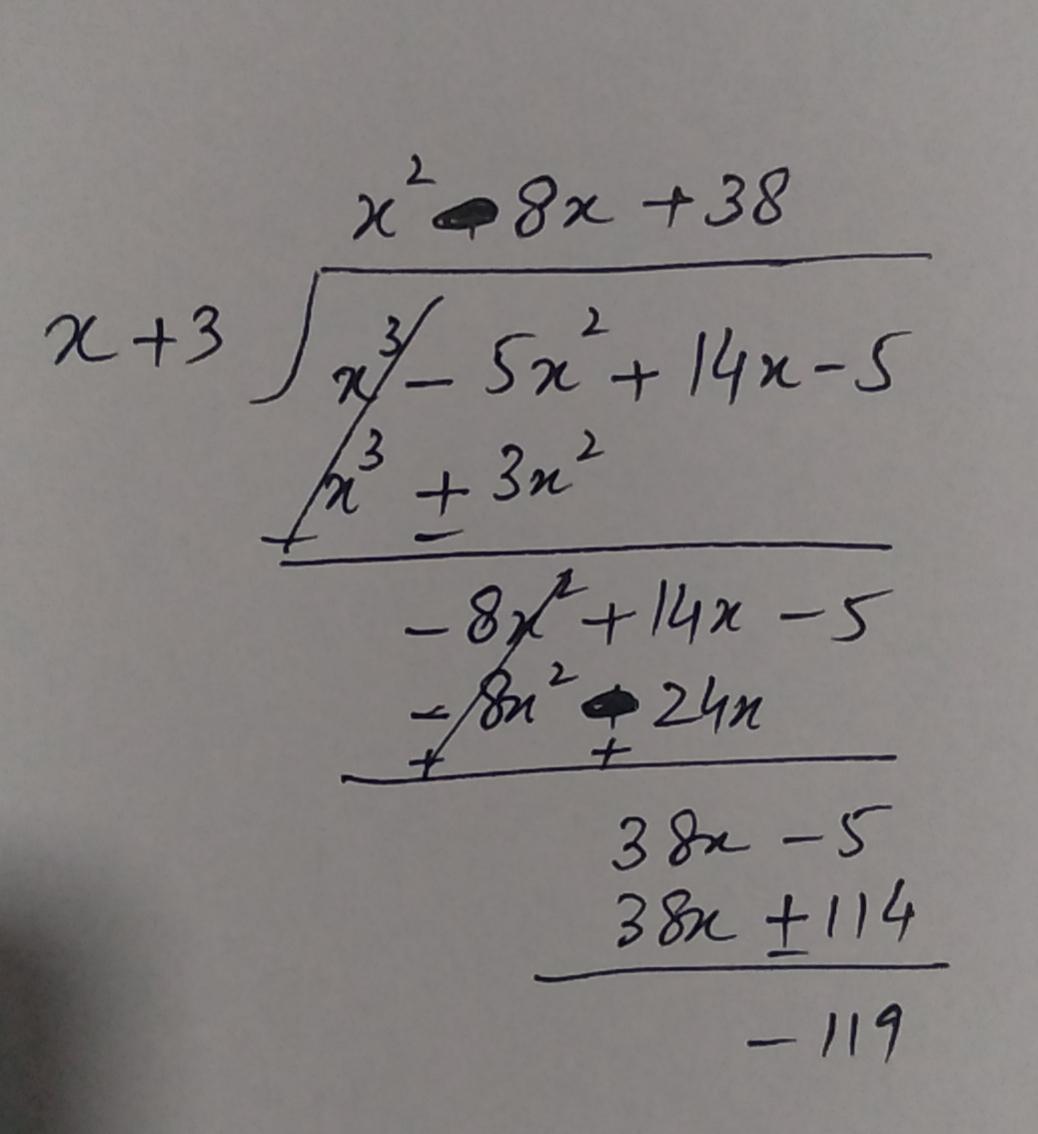 x² - 8x + 38
x + 3 x³ - 5x² + 14x - 5
x³ + 3x²
- -
-8x² + 14x - 5
-8x² - 24x
+ +
38x - 5
38x + 114
-
-119